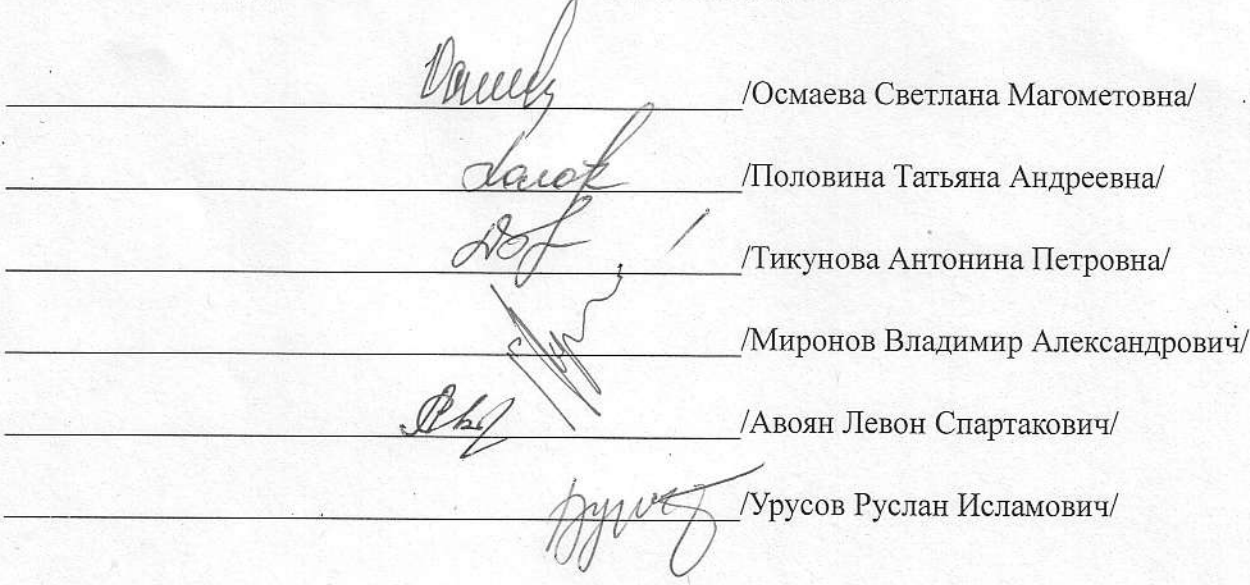 /Осмаева Светлана Магометовна/
/Половина Татьяна Андреевна/
/Тикунова Антонина Петровна/
/Миронов Владимир Александрович/
/Авоян Левон Спартакович/
/Урусов Руслан Исламович/